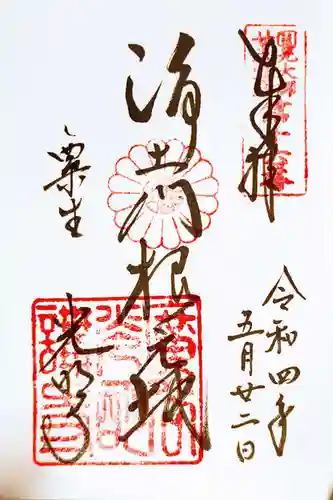 奉拝
令和四年
五月廿二日
浄土門根元地
粟生
光明寺